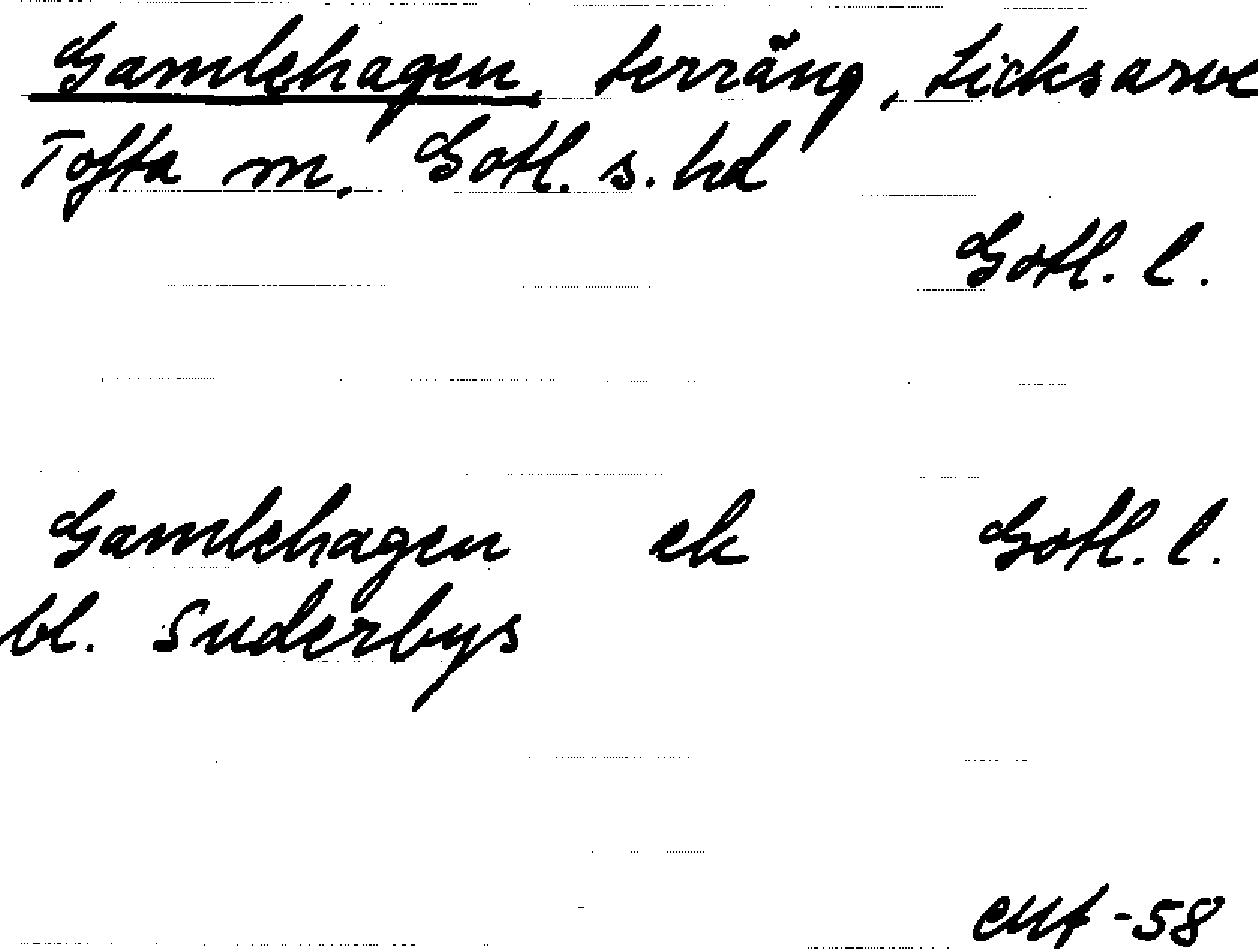 Gamlehagen, terräng, Licksarve
Tofta m, Gotl. s. hd
Gotl. l.
Gamlehagen ek Gotl. l.
bl. Suderbys
-58